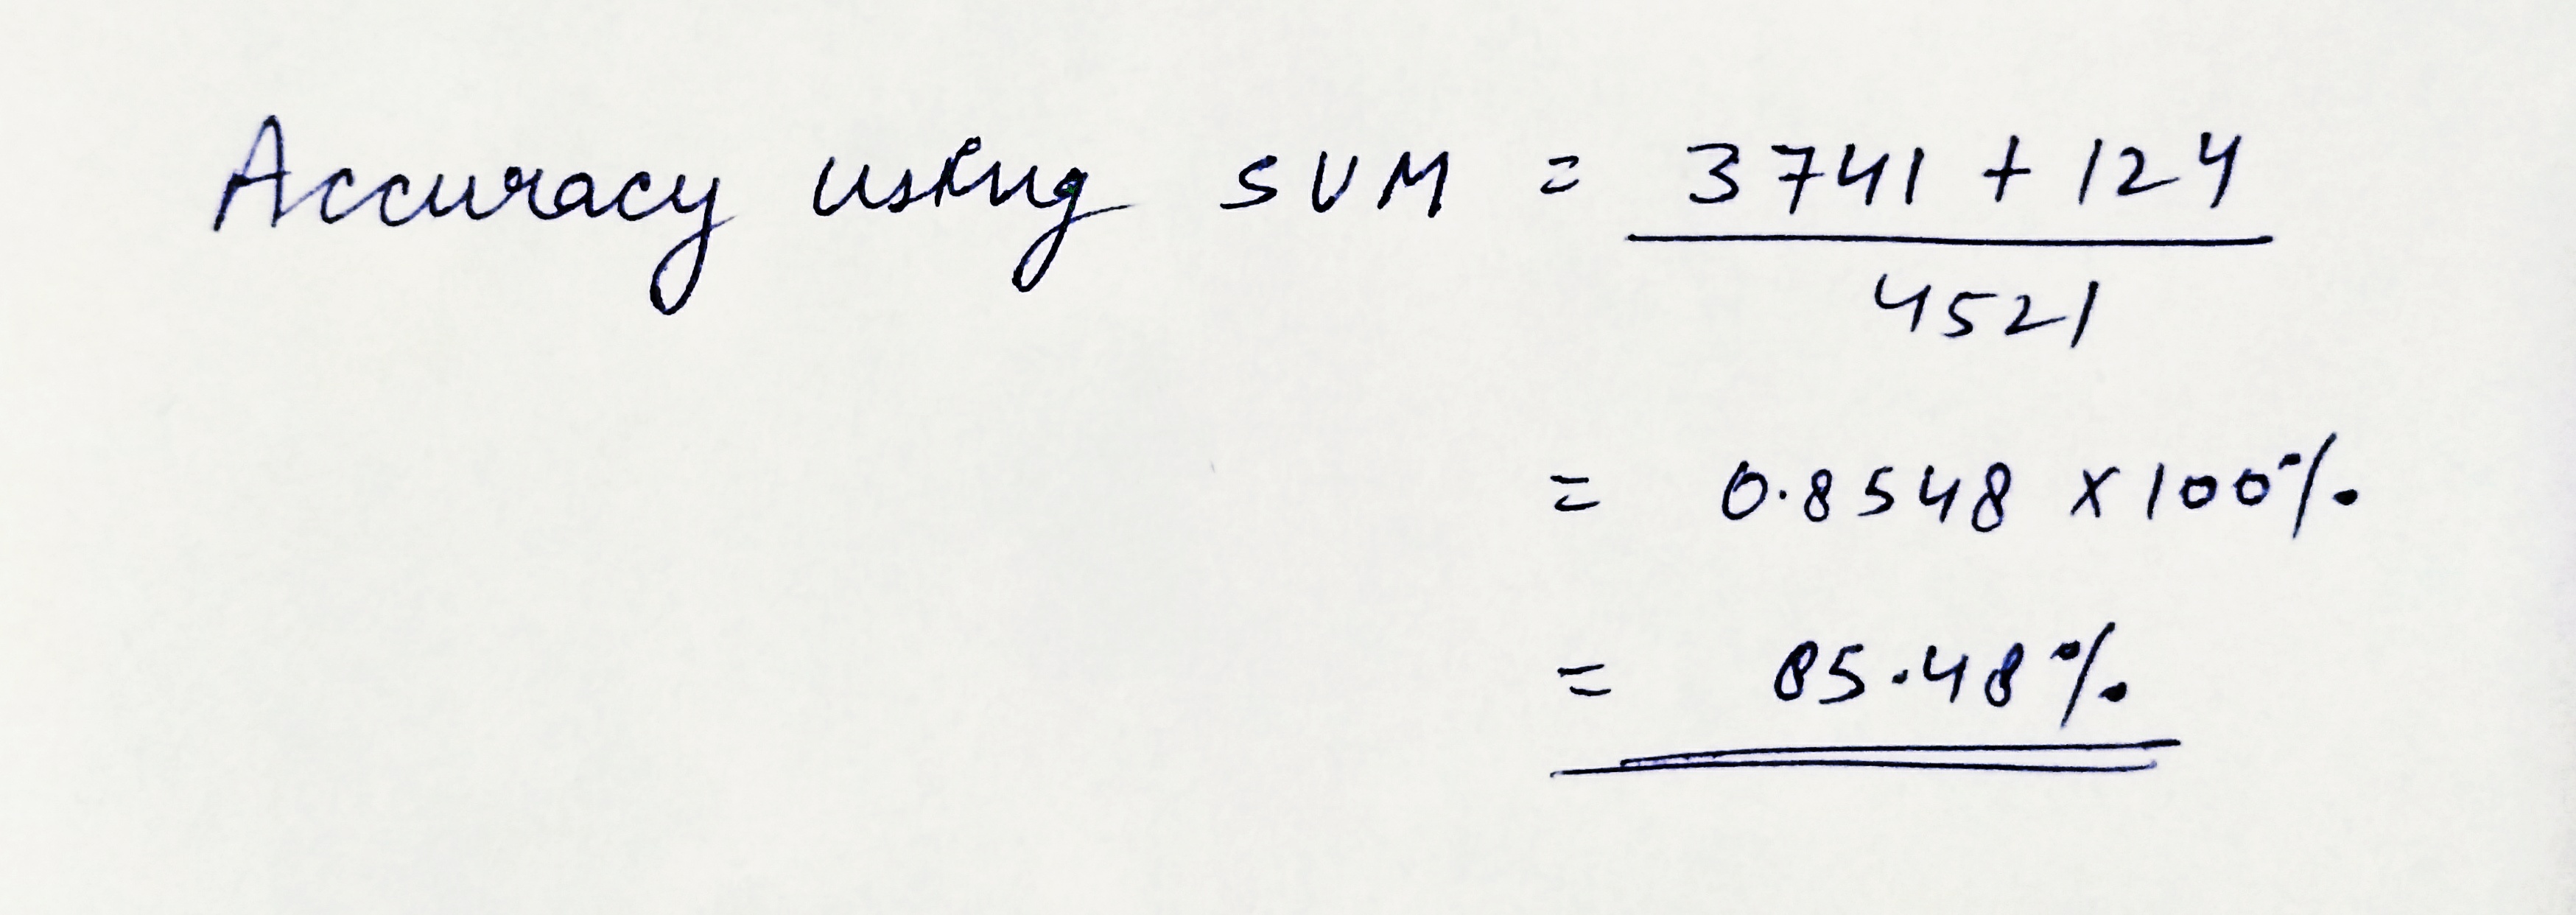 Accuracy using SVM = 3741 + 124
4521
= 0.8548 x 100%
= 85.48%